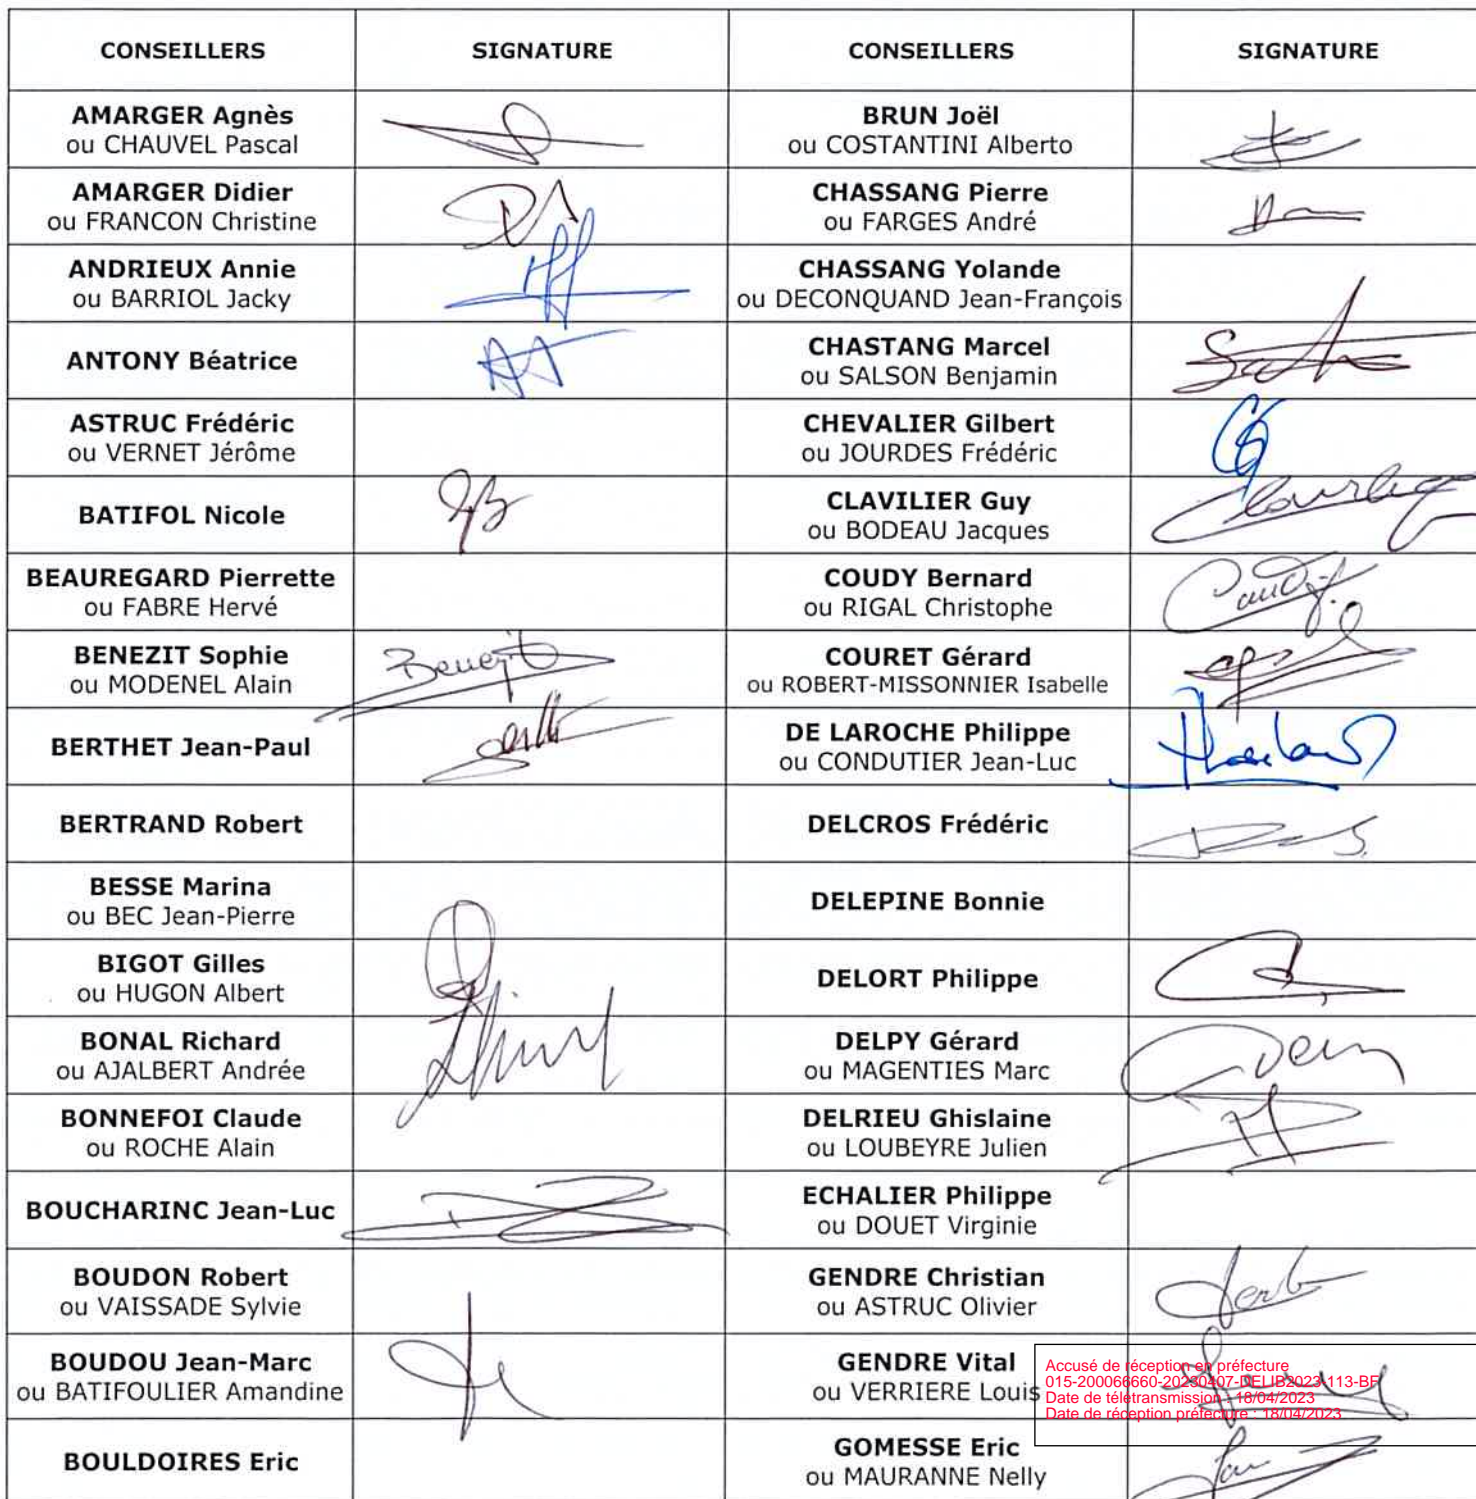 CONSEILLERS SIGNATURE CONSEILLERS SIGNATURE
AMARGER Agnès
ou CHAUVEL Pascal
BRUN Joël
ou COSTANTINI Alberto
AMARGER Didier
ou FRANCON Christine
CHASSANG Pierre
ou FARGES André
ANDRIEUX Annie
ou BARRIOL Jacky
CHASSANG Yolande
ou DECONQUAND Jean-François
ANTONY Béatrice
CHASTANG Marcel
ou SALSON Benjamin
ASTRUC Frédéric
ou VERNET Jérôme
CHEVALIER Gilbert
ou JOURDES Frédéric
BATIFOL Nicole
CLAVILIER Guy
ou BODEAU Jacques
BEAUREGARD Pierrette
ou FABRE Hervé
COUDY Bernard
ou RIGAL Christophe
BENEZIT Sophie
ou MODENEL Alain
Benezit
COURET Gérard
ou ROBERT-MISSONNIER Isabelle
BERTHET Jean-Paul
DE LAROCHE Philippe
ou CONDUTIER Jean-Luc
BERTRAND Robert
DELCROS Frédéric
BESSE Marina
ou BEC Jean-Pierre
DELEPINE Bonnie
BIGOT Gilles
ou HUGON Albert
DELORT Philippe
BONAL Richard
ou AJALBERT Andrée
DELPY Gérard
ou MAGENTIES Marc
BONNEFOI Claude
ou ROCHE Alain
DELRIEU Ghislaine
ou LOUBEYRE Julien
BOUCHARINC Jean-Luc
ECHALIER Philippe
ou DOUET Virginie
BOUDON Robert
ou VAISSADE Sylvie
GENDRE Christian
ou ASTRUC Olivier
BOUDOU Jean-Marc
ou BATIFOULIER Amandine
GENDRE Vital
ou VERRIERE Louis
Accusé de réception en préfecture
015-200066660-20230407-DELIB2023-113-BF
Date de télétransmission : 18/04/2023
Date de réception préfecture : 18/04/2023
BOULDOIRES Eric
GOMESSE Eric
ou MAURANNE Nelly